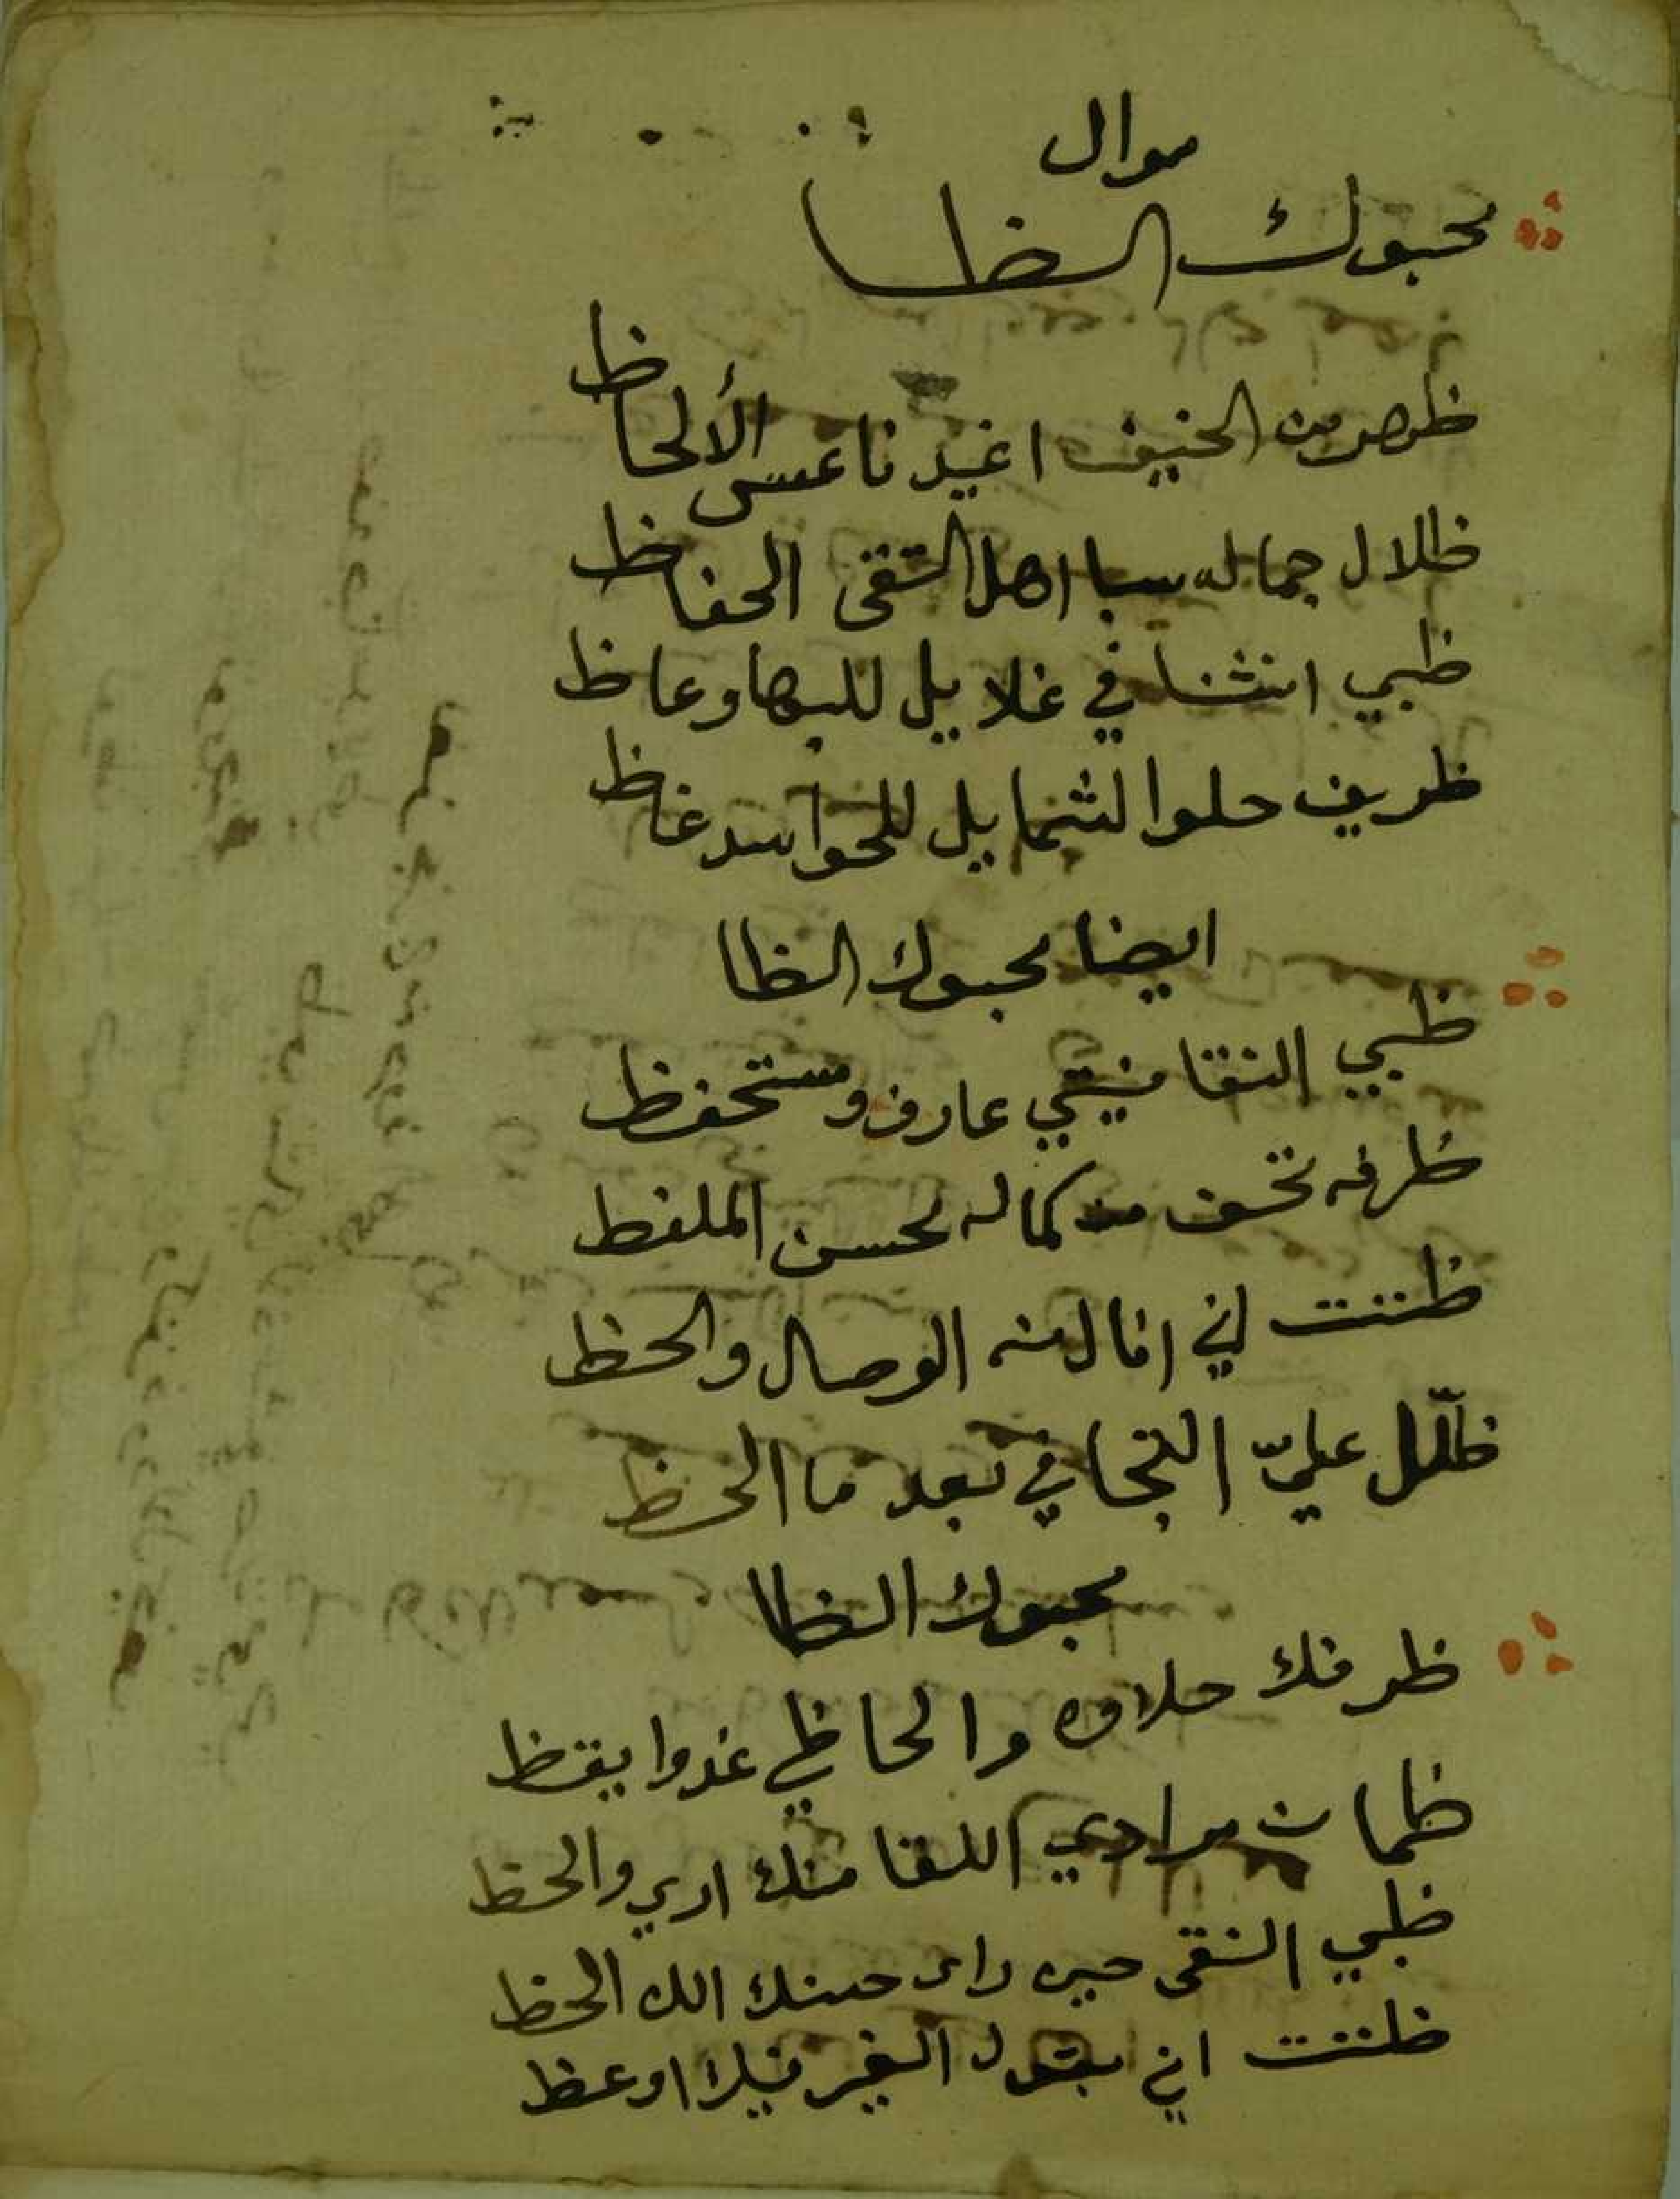 موال
محبوك الظا
ظهر من الخيف اغيد ناعس الألحاظ
ظلال جماله سبا اهل التقى الحفاظ
ظبي انثنا في غلايل للبها وعاظ
ظريف حلو الشمايل للحواسد غاظ
ايضا محبوك الظا
ظبي النقا فيتي عارف ومستحفظ
ظرفه تحف من كماله لحسن الملفظ
ظننت اني انال منه الوصال والحظ
ظلل عليّ التجافي بعد ما الحظ
محبوك الظا
ظرفك حلاوه والحاظي غدوا يقظ
ظمان مرادي اللقا منك اري والحظ
ظبي النقى حين راى حسنك الك الحظ
ظننت اني بقول الغير فيك اوعظ